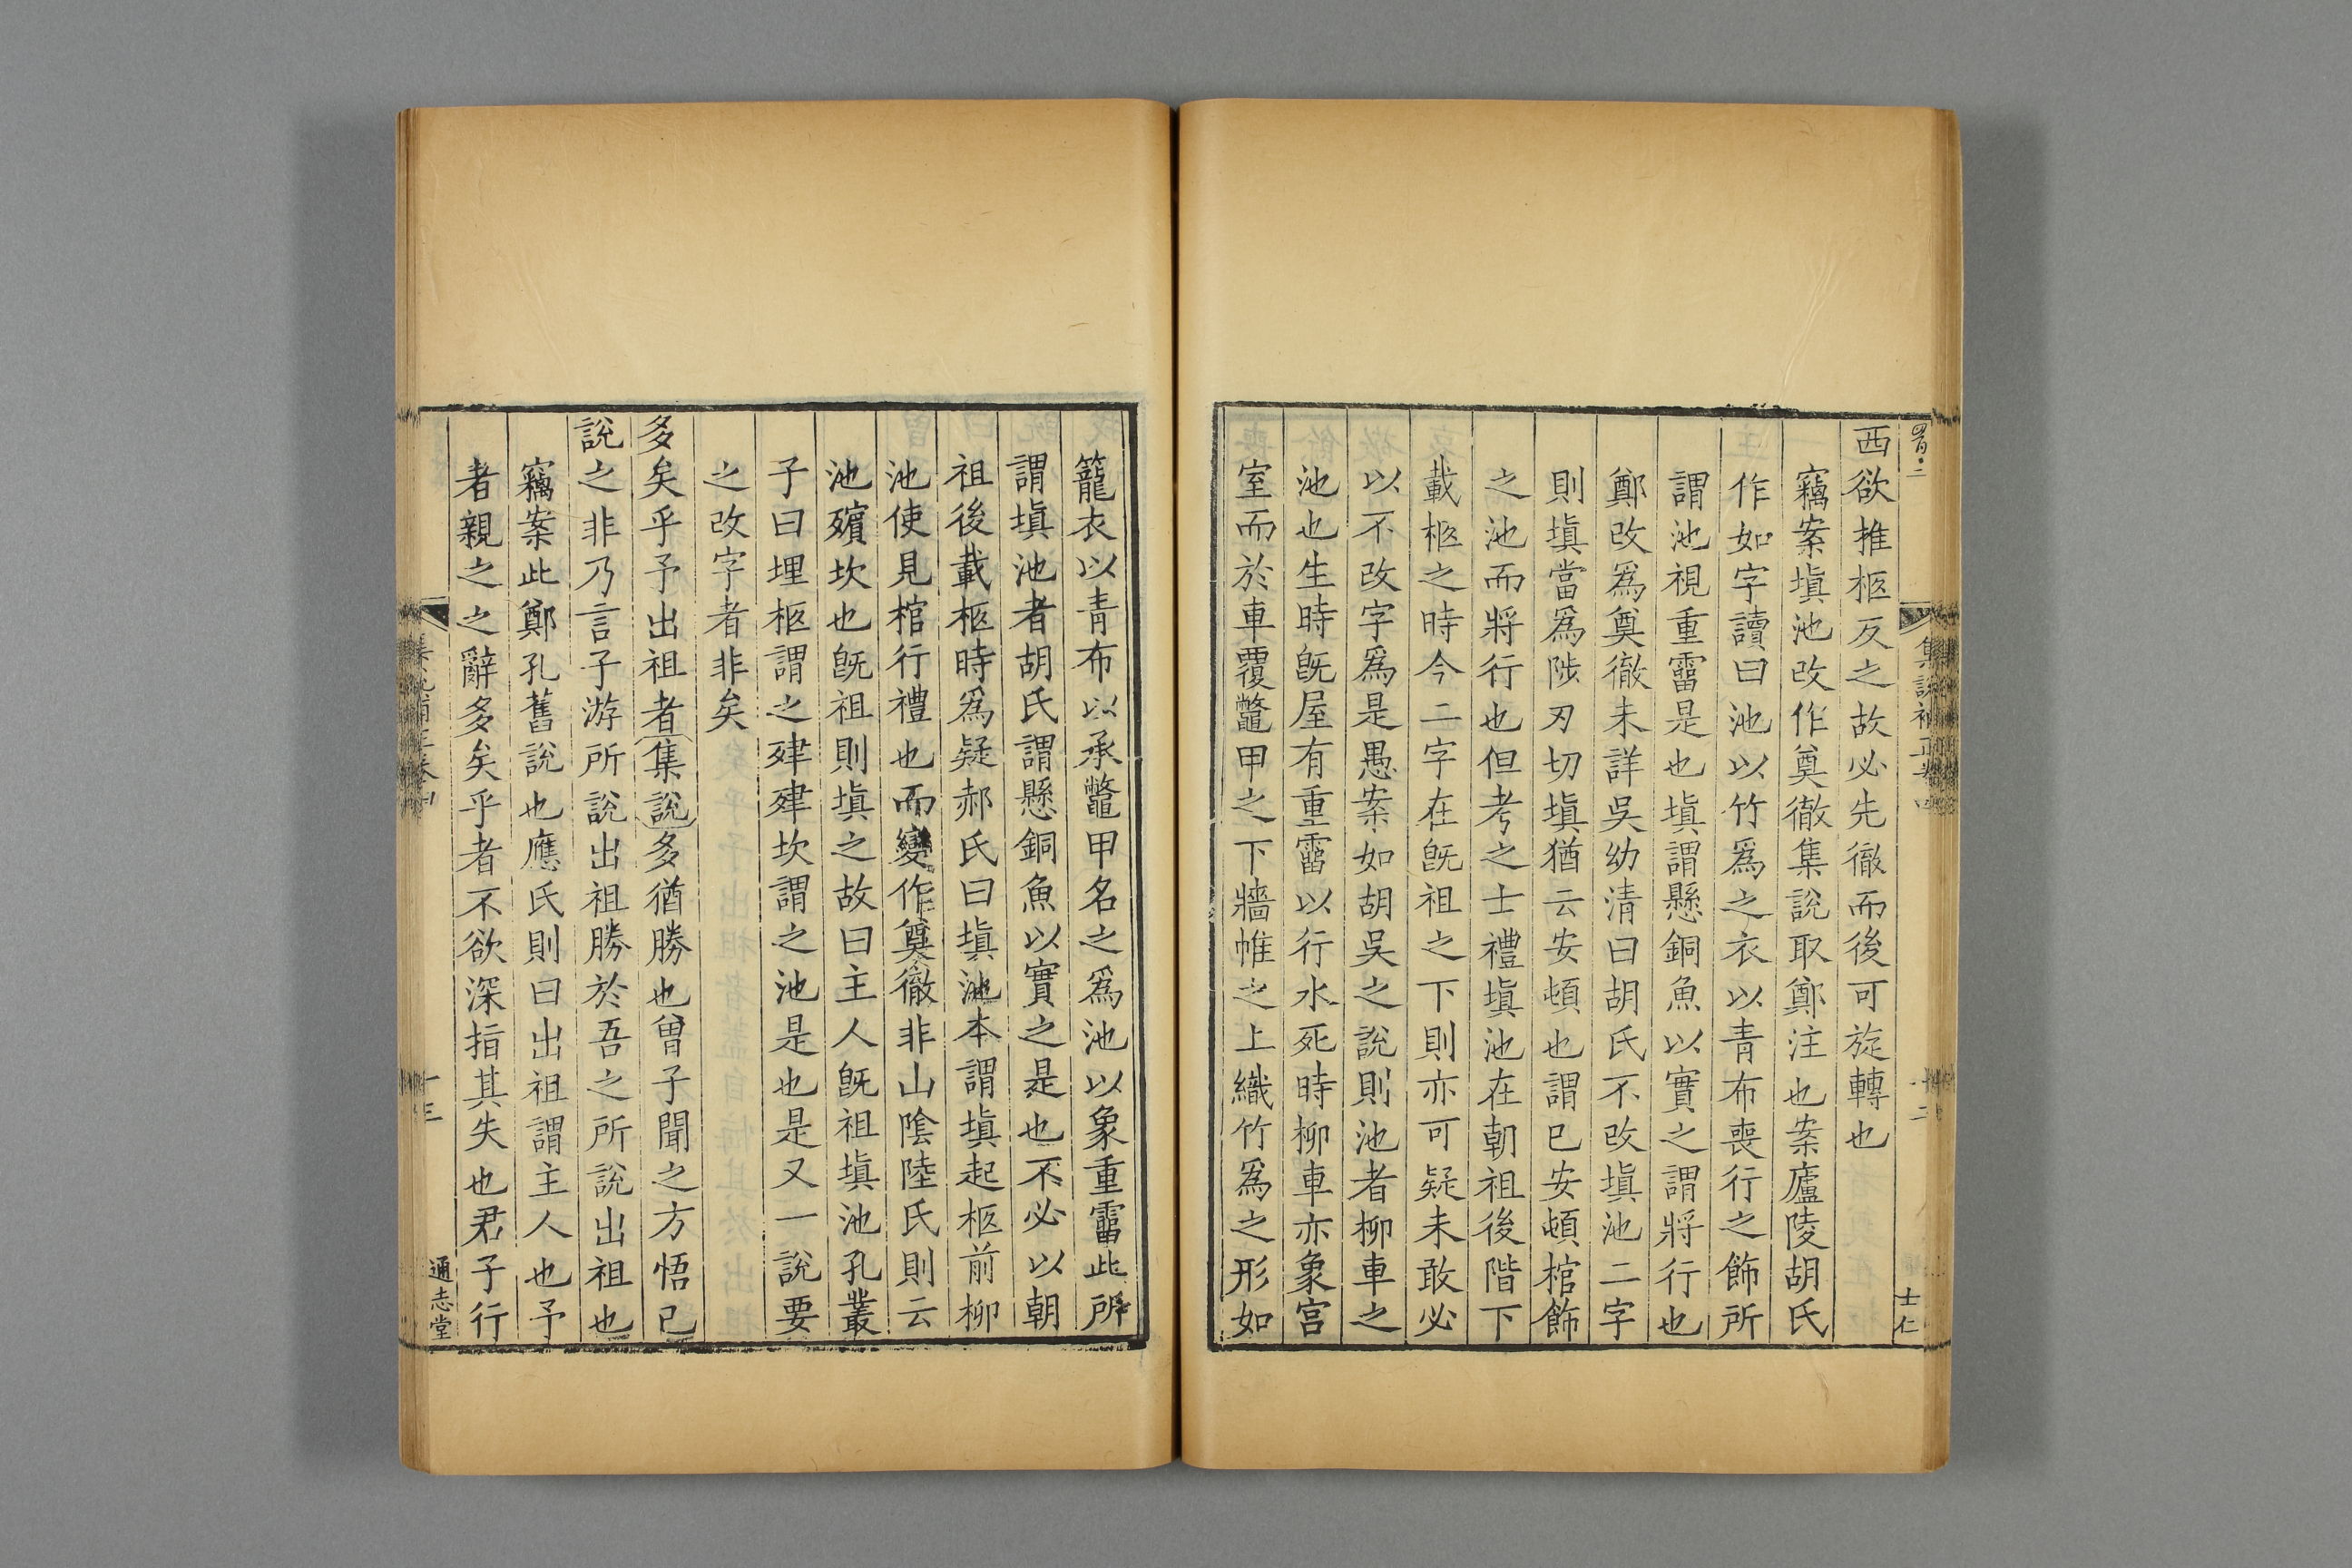 西欲推柩反之故必先徹而後可旋轉也
竊案填池改作奠徹集說取鄭注也案廬陵胡氏
作如字讀曰池以竹爲之衣以青布喪行之飾所
謂池視重霤是也填謂懸銅魚以實之謂將行也
鄭改爲奠徹未詳吳幼清曰胡氏不改填池二字
則填當爲陟刃切填猶云安頓也謂已安頓棺飾
之池而將行也但考之士禮填池在朝祖後階下
載柩之時今二字在旣祖之下則亦可疑未敢必
以不改字爲是愚案如胡吳之說則池者柳車之
池也生時旣屋有重霤以行水死時柳車亦象宫
室而於車覆鼈甲之下牆帷之上織竹爲之形如
籠衣以青布以承鼈甲名之爲池以象重霤此所
謂填池者胡氏謂懸銅魚以實之是也不必以朝
祖後載柩時爲疑郝氏曰填池本謂填起柩前柳
池使見棺行禮也而變作奠徹非山陰陸氏則云
池殯坎也旣祖則填之故曰主人旣祖填池孔叢
子曰埋柩謂之肂肂坎謂之池是也是又一說要
之改字者非矣
多矣乎予出祖者集說多猶勝也曾子聞之方悟已
說之非乃言子游所說出祖勝於吾之所說出祖也
竊案此鄭孔舊說也應氏則曰出祖謂主人也予
者親之之辭多矣乎者不欲深指其失也君子行
通志堂